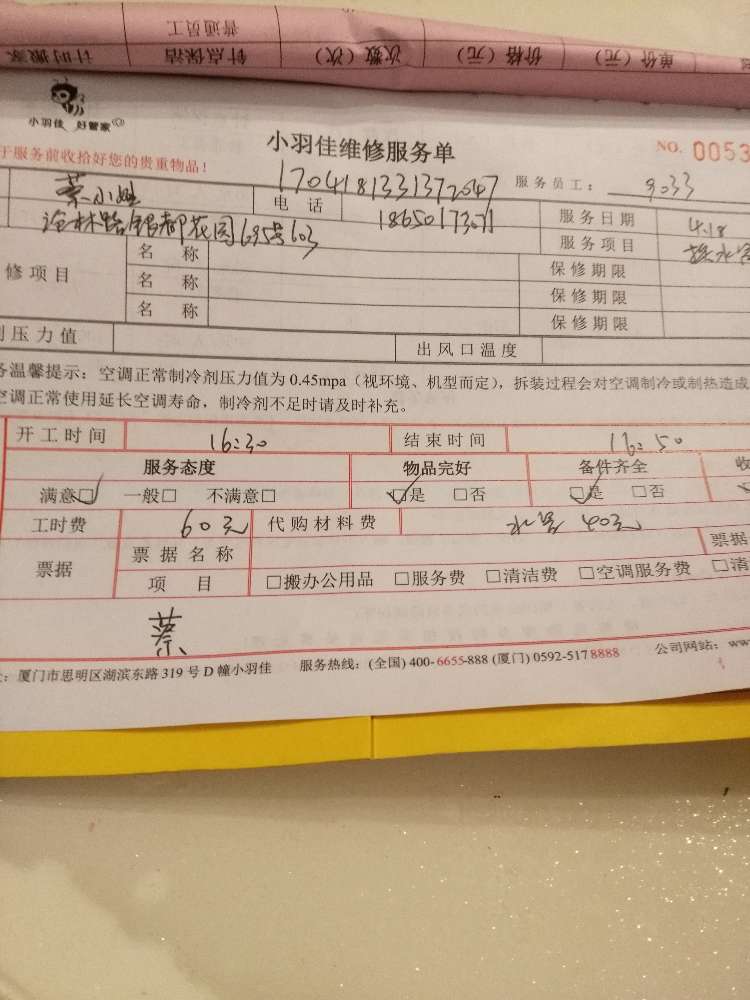 普通员工
计时搬家 针点保洁 次数（次） 价格（元） 单价（元）
小羽佳 好管家
小羽佳维修服务单
NO. 0053
于服务前收拾好您的贵重物品！
1704181331372047
服务员工： 9033
蔡小姐 电话 18650173071 服务日期 4.18
路 都花园695号603 服务项目 换水
修项目 名称 保修期限
名称 保修期限
名称 保修期限
剂压力值 出风口温度
务温馨提示：空调正常制冷剂压力值为0.45mpa（视环境、机型而定），拆装过程会对空调制冷或制热造成
空调正常使用延长空调寿命，制冷剂不足时请及时补充。
开工时间 16:30 结束时间 16:50
服务态度 物品完好 备件齐全 收
满意☑ 一般□ 不满意□ ☑是 □否 ☑是 □否
工时费 60元 代购材料费 水管 40元
票据 票据名称 票据
项目 □搬办公用品 □服务费 □清洁费 □空调服务费 □清
蔡
：厦门市思明区湖滨东路319号D幢小羽佳 服务热线：(全国) 400-6655-888 (厦门) 0592-5178888 公司网站：ww